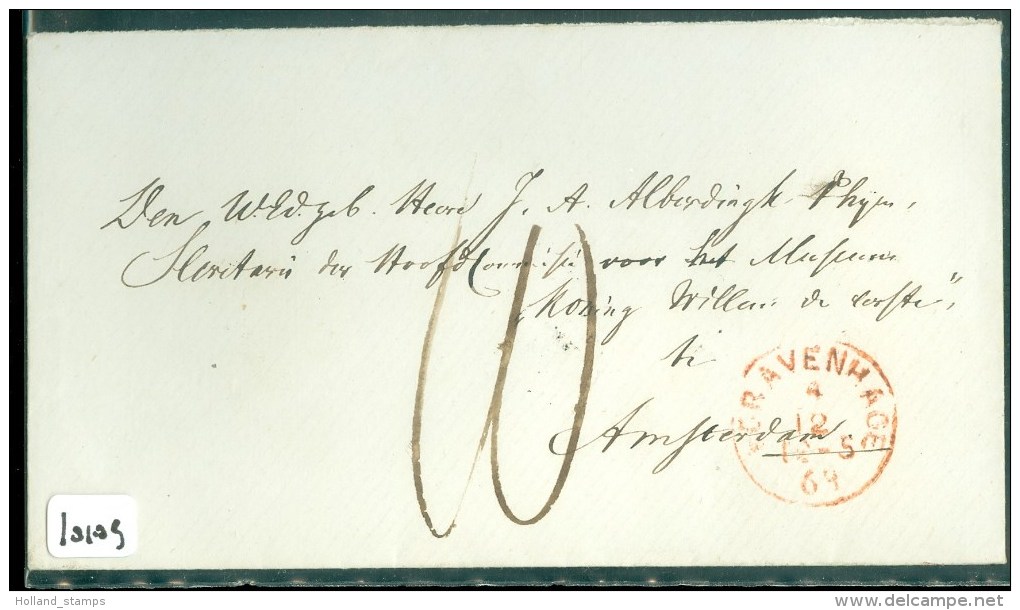 Den WelEd. geb. Heere J. A. Alberdingk Thijm,
Secretaris der Hoofdcommissie voor het Museum
„Koning Willem de eerste”,
te
Amsterdam
10
'S GRAVENHAGE
A
12
12-5
69
Holland_stamps
www.delcampe.net